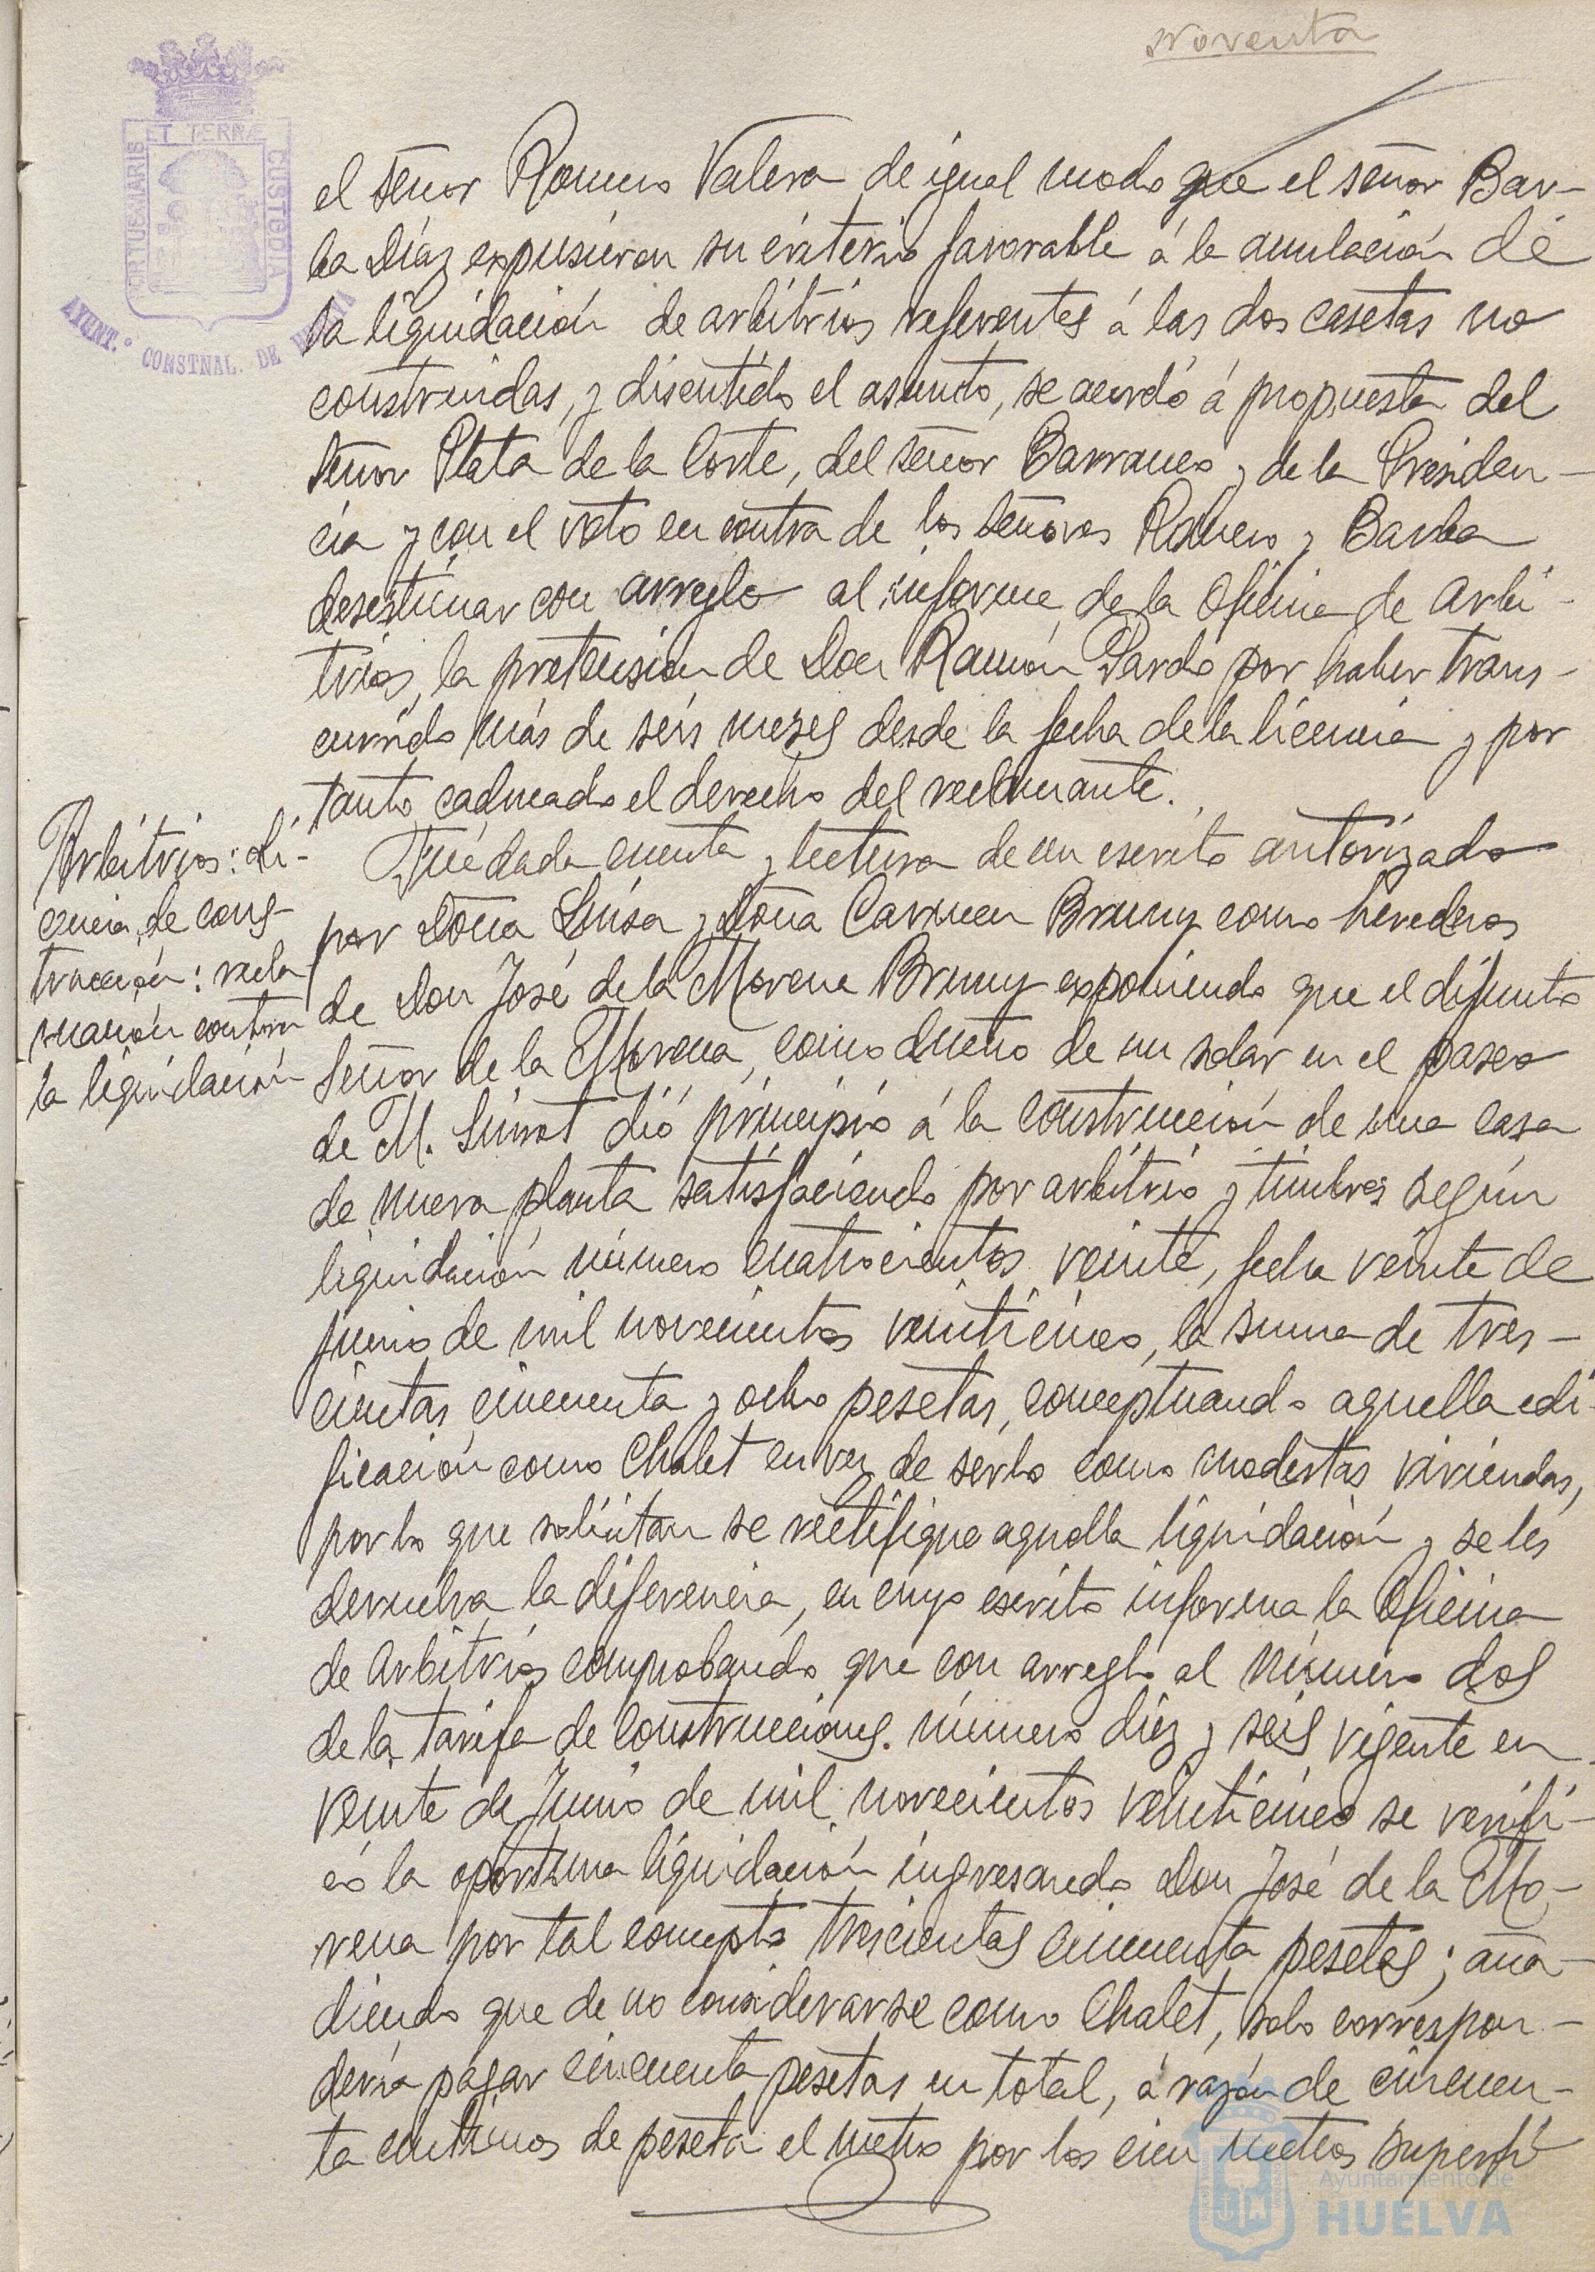 Noventa
PORTUS MARIS
ET TERRÆ
CUSTODIA
AYENT.º CONSTNAL. DE HUELVA
el señor Romero Valera de igual modo que el señor Bar-
ba Díaz expusieron su criterio favorable á la anulación de
la liquidación de arbitrios referentes á las dos casetas no
construidas, y discutido el asunto, se acordó á propuesta del
señor Plata de la Corte, del señor Barranco y de la Presiden-
cia y con el voto en contra de los señores Romero y Barba
desestimar con arreglo al informe de la Oficina de Arbi-
trios, la pretension de Don Ramón Pardo por haber trans-
currido más de seis mezes desde la fecha de la licencia y por
tanto caducado el derecho del reclamante.
Arbitrios: li-
cencia de cons-
trucción: recla
mación contra
la liquidación
Fué dada cuenta y lectura de un escrito autorizado
por Doña Luisa y Doña Carmen Bruny como herederos
de Don José de la Morena Bruny exponiendo que el difunto
Señor de la Morena, como dueño de un solar en el paseo
de M. Siurot dió principio á la construcción de una casa
de nueva planta satisfaciendo por arbitrio y timbres según
liquidación número cuatrocientos veinte, fecha veinte de
junio de mil novecientos veinticinco, la suma de tres-
cientas cincuenta y ocho pesetas, conceptuando aquella edi-
ficación como Chalet en vez de serlo como modestas viviendas,
por lo que solicitan se rectifique aquella liquidación y se les
devuelva la diferencia, en cuyo escrito informa la Oficina
de arbitrios comprobando que con arreglo al número dos
de la tarifa de Construcciones número diez y seis vigente en
veinte de Junio de mil novecientos veinticinco se verifi-
có la oportuna liquidación ingresando Don José de la Mo-
rena por tal concepto trescientas cincuenta pesetas; aña-
diendo que de no considerarse como Chalet, solo correspon-
dería pagar cincuenta pesetas en total, á razón de cincuen-
ta centimos de peseta el metro por los cien metros superfi-
Ayuntamiento de
HUELVA